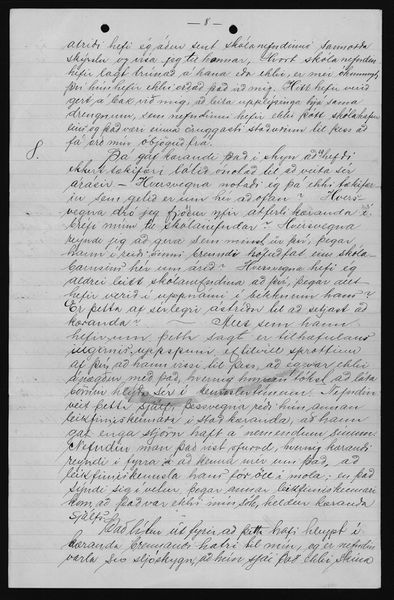 - 8 -
atriði hefi ég áður sent skólanefndinni sannorða
skýrslu og vísa jeg til hennar, Hvort skólanefndin
hefir lagt trúnað á hana eða ekki, er mér ókunnugt,
því hún hefir ekki rætt það við mig. Hitt hefir verið
gert, á bak við mig, að leita upplýsinga hjá sama
drengnum, sem nefndinni hefir ekki þótt skólahæfur
og það var einna öruggasti staðurinn til þess að
fá
8. Þá gaf kærandi það í skyn að hefði
ekkert tækifæri látið ónotað til að veita sér
árásir - Hversvegna notaði ég þá ekki tækifær-
in sem getið er um hér að ofan? Hvers-
vegna dró jeg fjöður yfir atferli kæranda í
brefi mínu til skólanefndar? Hversvegna
reyndi jeg að gera sem minst úr því, þegar
hann í reiði sinni brenndi höfuðfat eins skóla-
barnsins hér um árið? Hversvegna hefi eg
aldrei leitt skólanefndina að því, þegar allt
hefir verið í uppnámi í bekknum hans?
Er þetta af sérlegri ástríðu til að setjast að
kæranda? - Alt sem hann
hefir um þetta sagt er tilhæfulaus
uppspuni, eftilvill sprottinn
af því, að hann vissi til þess, að eg var ekki
ánægður með það, hvernig hann lokst að láta
börnin hlýða sér í kenslutímum. Nefndin
veit þetta sjálf, þessvegna réði hún annan
leikfimiskennara í stað kæranda, að hann
gat enga stjórn haft á nemendum sínum.
Nefndin man það víst ofurvel, hvernig kærandi
reyndi í fyrra að kenna mér um það, að
leikfimiskensla hans fór öll í mola; en það
sýndi sig í vetur þegar annar leikfimiskennari
kom, að það var ekki mín sök, heldur kæranda
sjálfs.
Það lítur út fyrir, að þetta hafi hleypt í
kæranda brennandi hatri til mín, og er nefndin
varla svo sljóskygn, að hún sjái það ekki skína